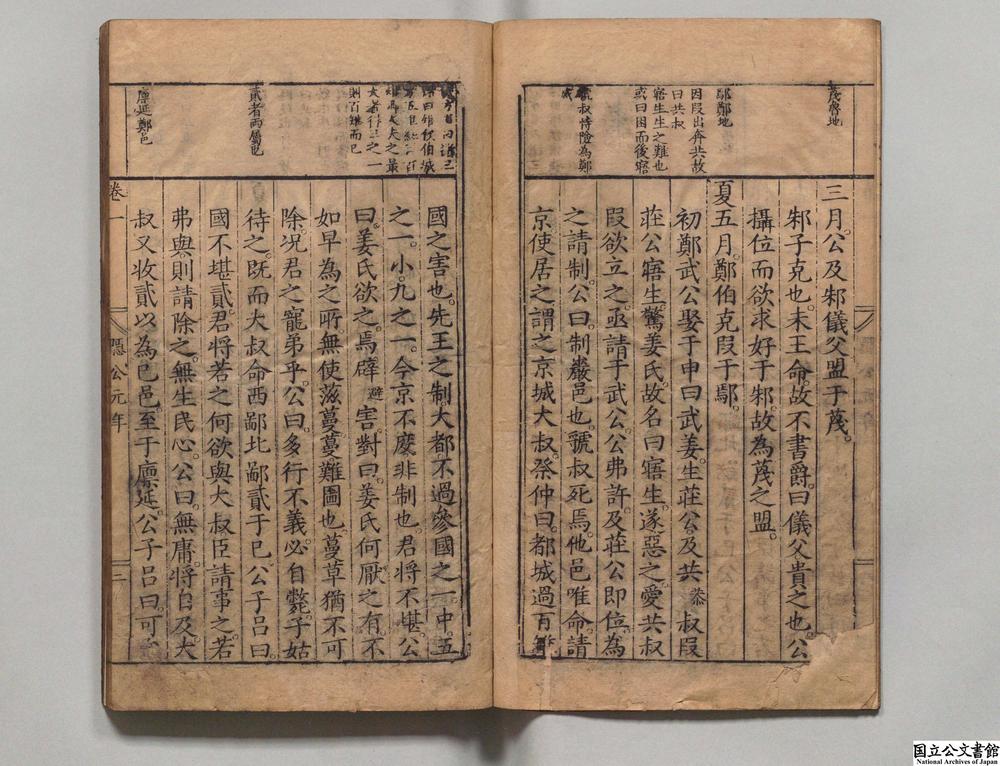 蔑魯地
鄢鄭地
因段出奔共故
曰共叔
寤生生之難也
或曰困而後寤
虢叔恃險為鄭
三月。公及邾儀父盟于蔑。
邾子克也。未王命。故不書爵。曰儀父貴之也。公
攝位而欲求好于邾。故為蔑之盟。
夏五月。鄭伯克段于鄢。
初鄭武公娶于申曰武姜。生莊公及共 恭 叔段
莊公寤生。驚姜氏。故名曰寤生。遂惡之。愛共叔
段欲立之。亟請于武公。公弗許。及莊公即位。為
之請制。公曰。制巖邑也。虢叔死焉。他邑唯命。請
京使居之。謂之京城大叔。祭仲曰。都城過百雉
雉為大夫之最
則百雉而已
貳者兩屬也
廩延鄭邑
國之害也。先王之制。大都不過參國之一。中五
之一。小九之一。今京不度。非制也。君將不堪。公
曰。姜氏欲之。焉辟 避 害。對曰。姜氏何厭之有。不
如早為之所。無使滋蔓。蔓難圖也。蔓草猶不可
除。況君之寵弟乎。公曰。多行不義。必自斃。子姑
待之。既而大叔命西鄙北鄙貳于己。公子呂曰。
國不堪貳。君將若之何。欲與大叔。臣請事之。若
弗與。則請除之。無生民心。公曰。無庸。將自及。大
叔又收貳以為己邑。至于廩延。公子呂曰。可矣
卷一
隱公元年
二
国立公文書館
National Archives of Japan